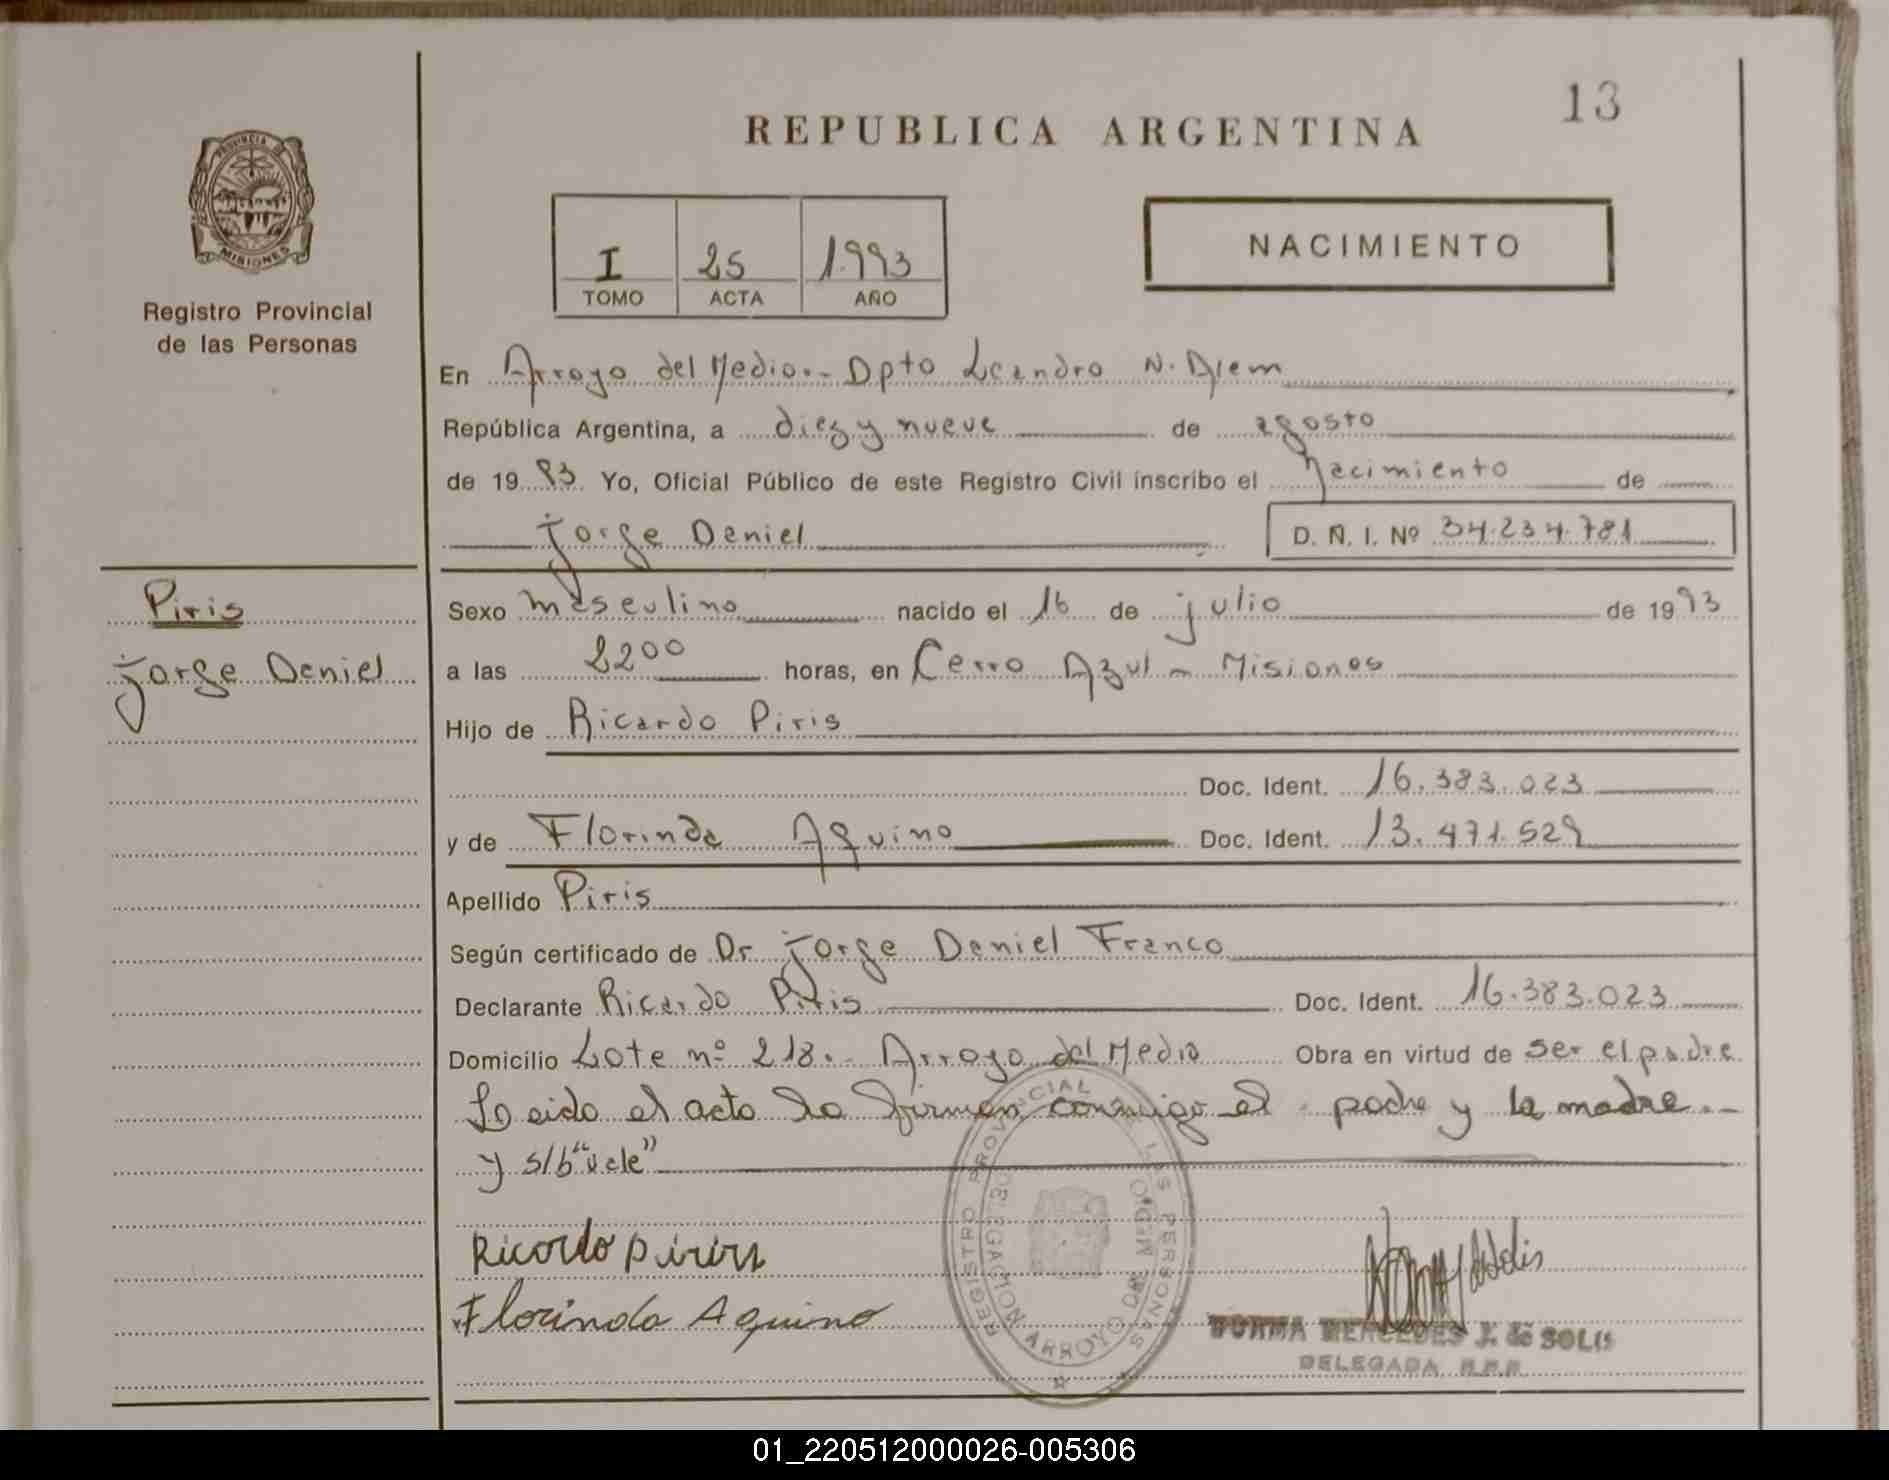 13
REPUBLICA ARGENTINA
PROVINCIA DE
MISIONES
Registro Provincial
de las Personas
I 25 1.993
TOMO ACTA AÑO
NACIMIENTO
En Arroyo del Medio.- Dpto Leandro N. Alem
República Argentina, a diez y nueve de agosto
de 1993 Yo, Oficial Público de este Registro Civil inscribo el Nacimiento de
Jorge Daniel D. N. I. Nº 34.234.781
Piris
Jorge Daniel
Sexo masculino nacido el 16 de julio de 1993
a las 2200 horas, en Cerro Azul - Misiones
Hijo de Ricardo Piris
Doc. Ident. 16.383.023
y de Florinda Aquino Doc. Ident. 13.471.529
Apellido Piris
Según certificado de Dr. Jorge Daniel Franco
Declarante Ricardo Piris Doc. Ident. 16.383.023
Domicilio Lote nº 218.- Arroyo del Medio Obra en virtud de ser el padre
Leido el acto lo firman conmigo el padre y la madre.-
y s/b "vale"
REGISTRO PROVINCIAL DE LAS PERSONAS
DELEGACION ARROYO DEL MEDIO
Ricardo Piris
Florinda Aquino
NORMA MERCEDES J. de SOLIS
DELEGADA R.P.P.
01_220512000026-005306